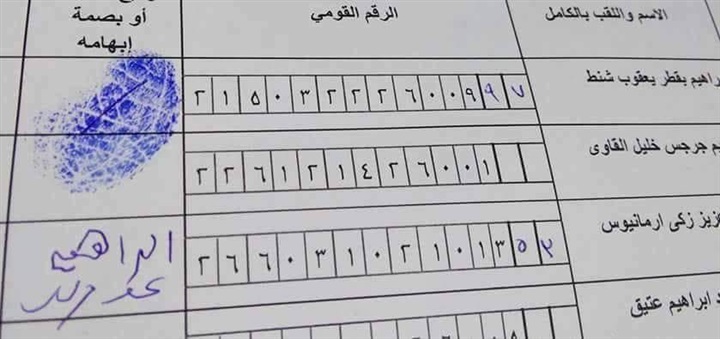 الاسم واللقب بالكامل
الرقم القومي
أو بصمة
إبهامه
راهيم بقطر يعقوب شنط
٢١٥٠٣٢٢٢٦٠٠٩٩٧
م جرجس خليل القاوى
٢٢٦١٢١٤٢٦٠٠١
زيز زكى ارمانيوس
٢٦٦٠٣١٠٢١٠١٣٥٣
ابراهيم
د ابراهيم عتيق